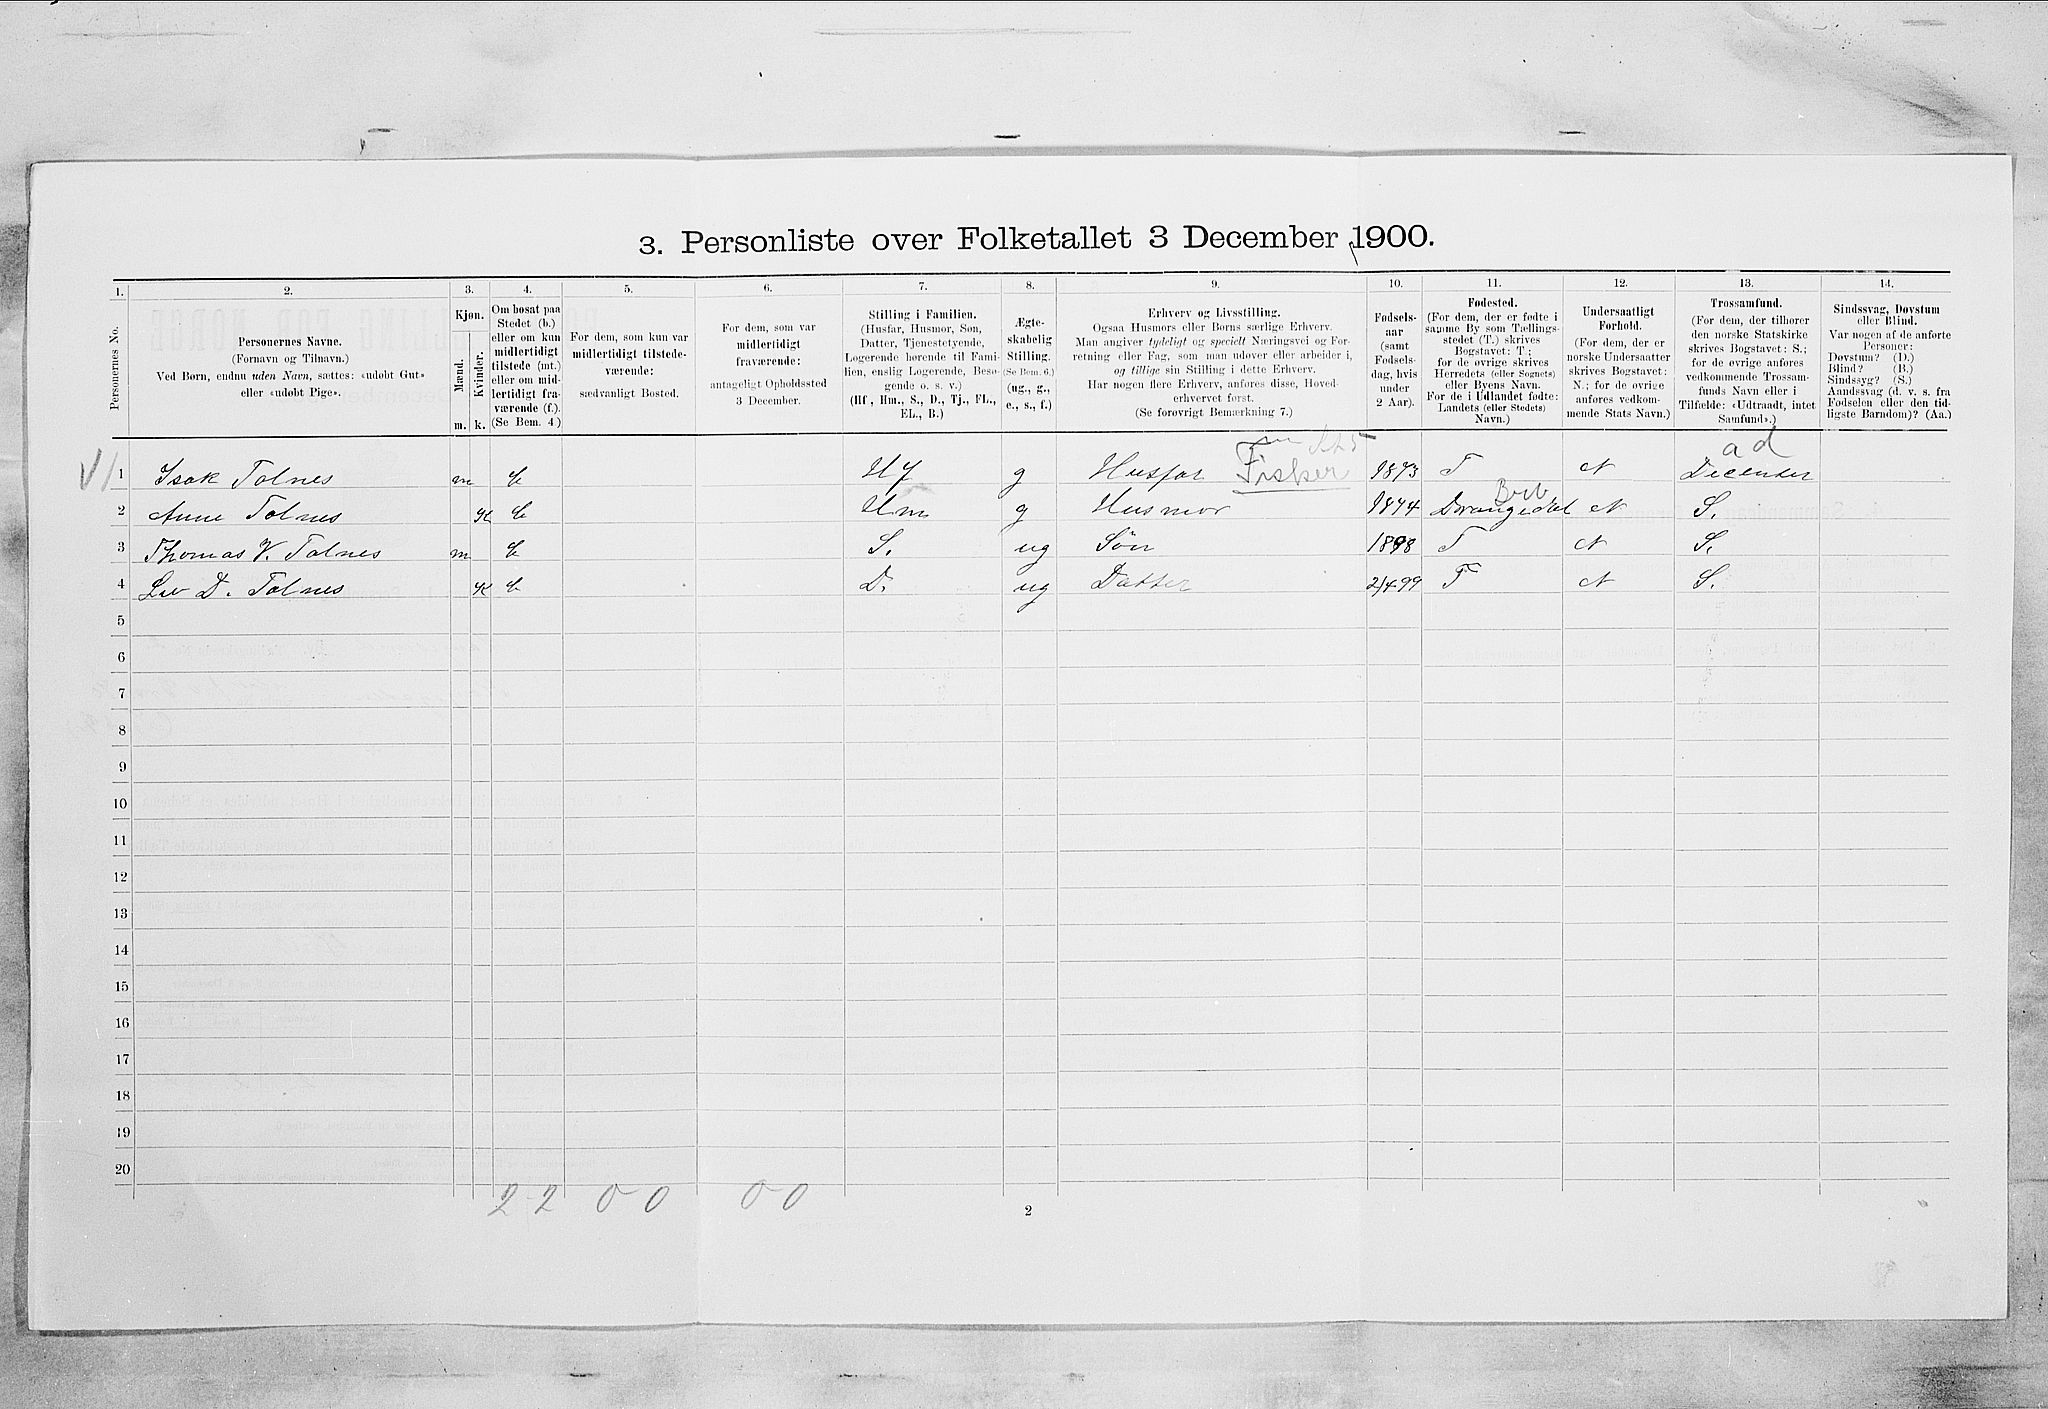 3. Personliste over Folketallet 3 December 1900.
1. 2. 3. 4. 5. 6. 7. 8. 9. 10. 11. 12. 13. 14.
Personernes No.
Personernes Navne.
(Fornavn og Tilnavn.)
Ved Børn, endnu uden Navn, sættes: «udøbt Gut»
eller «udøbt Pige».
Kjøn.
Mænd.
Kvinder.
m. k.
Om bosat paa
Stedet (b.)
eller om kun
midlertidigt
tilstede (mt.)
eller om mid-
lertidigt fra-
værende (f.).
(Se Bem. 4.)
For dem, som kun var
midlertidigt tilstede-
værende:
sædvanligt Bosted.
For dem, som var
midlertidigt
fraværende:
antageligt Opholdssted
3 December.
Stilling i Familien.
(Husfar, Husmor, Søn,
Datter, Tjenestetyende,
Logerende hørende til Fami-
lien, enslig Logerende, Besø-
gende o. s. v.)
(Hf., Hm., S., D., Tj., FL.,
EL., B.)
Ægte-
skabelig
Stilling.
(Se Bem. 6.)
(ug., g.,
e., s., f.)
Erhverv og Livsstilling.
Ogsaa Husmors eller Børns særlige Erhverv.
Man angiver tydeligt og specielt Næringsvei og For-
retning eller Fag, som man udøver eller arbeider i,
og tillige sin Stilling i dette Erhverv.
Har nogen flere Erhverv, anføres disse, Hoved-
erhvervet først.
(Se forøvrigt Bemærkning 7.)
Fødsels-
aar
(samt
Fødsels-
dag, hvis
under
2 Aar).
Fødested.
(For dem, der er fødte i
samme By som Tællings-
stedet (T.) skrives
Bogstavet: T.;
for de øvrige skrives
Herredets (eller Sognets)
eller Byens Navn.
For de i Udlandet fødte:
Landets (eller Stedets)
Navn.)
Undersaatligt
Forhold.
(For dem, der er
norske Undersaatter
skrives Bogstavet:
N.; for de øvrige
anføres vedkom-
mende Stats Navn.)
Trossamfund.
(For dem, der tilhører
den norske Statskirke
skrives Bogstavet: S.;
for de øvrige anføres
vedkommende Trossam-
funds Navn eller i
Tilfælde: «Udtraadt, intet
Samfund».)
Sindssvag, Døvstum
eller Blind.
Var nogen af de anførte
Personer:
Døvstum? (D.)
Blind? (B.)
Sindssyg? (S.)
Aandssvag (d. v. s. fra
Fødselen eller den tid-
ligste Barndom)? (Aa.)
ad
1 Isak Tolnes m b Hf g Husfar Fisker 1873 T N Decenter
2 Anne Tolnes K b Hm g Husmor 1874 Drangedal N S.
3 Thomas V. Tolnes m b S. ug Søn 1898 T N S.
4 Liv D. Tolnes K b D. ug Datter 2/4 99 T N S.
5
6
7
8
9
10
11
12
13
14
15
16
17
18
19
20
2-2 0-0 0-0
2